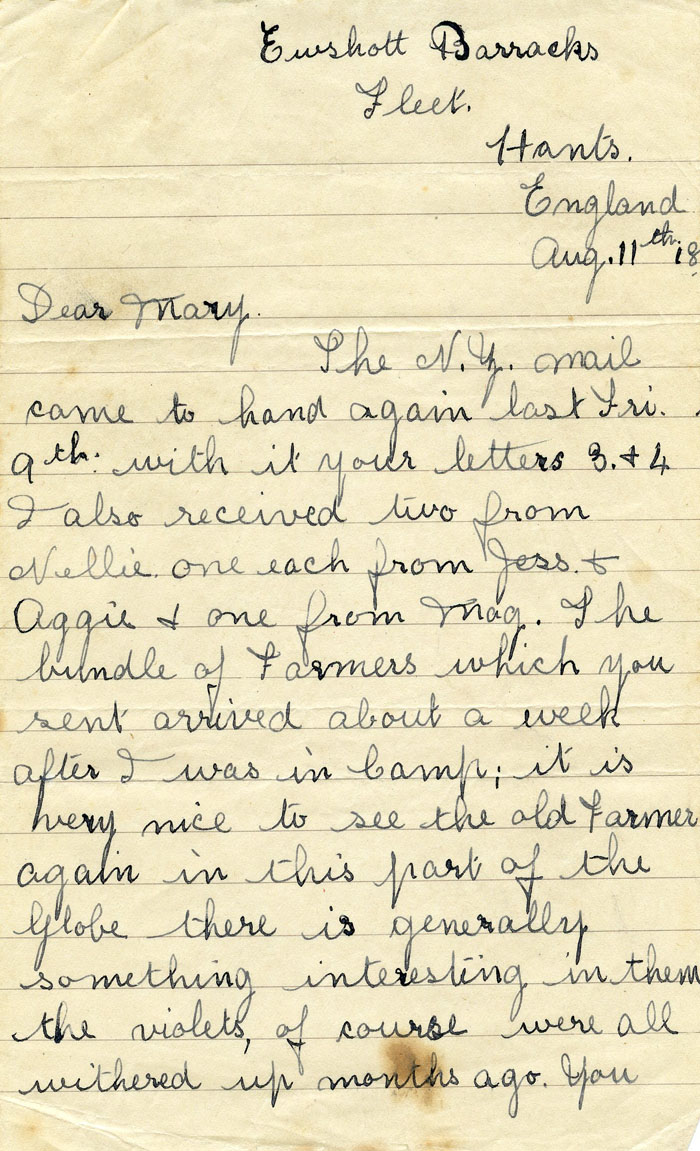 Ewshott Barracks
Fleet.
Hants.
England
Aug. 11th. 18
Dear Mary.
The N.Z. mail
came to hand again last Fri.
9th. with it your letters 3. & 4
I also received two from
Nellie. one each from Jess. &
Aggie & one from Mag. The
bundle of Farmers which you
sent arrived about a week
after I was in Camp; it is
very nice to see the old Farmer
again in this part of the
Globe there is generally
something interesting in them
the violets, of course were all
withered up months ago. You